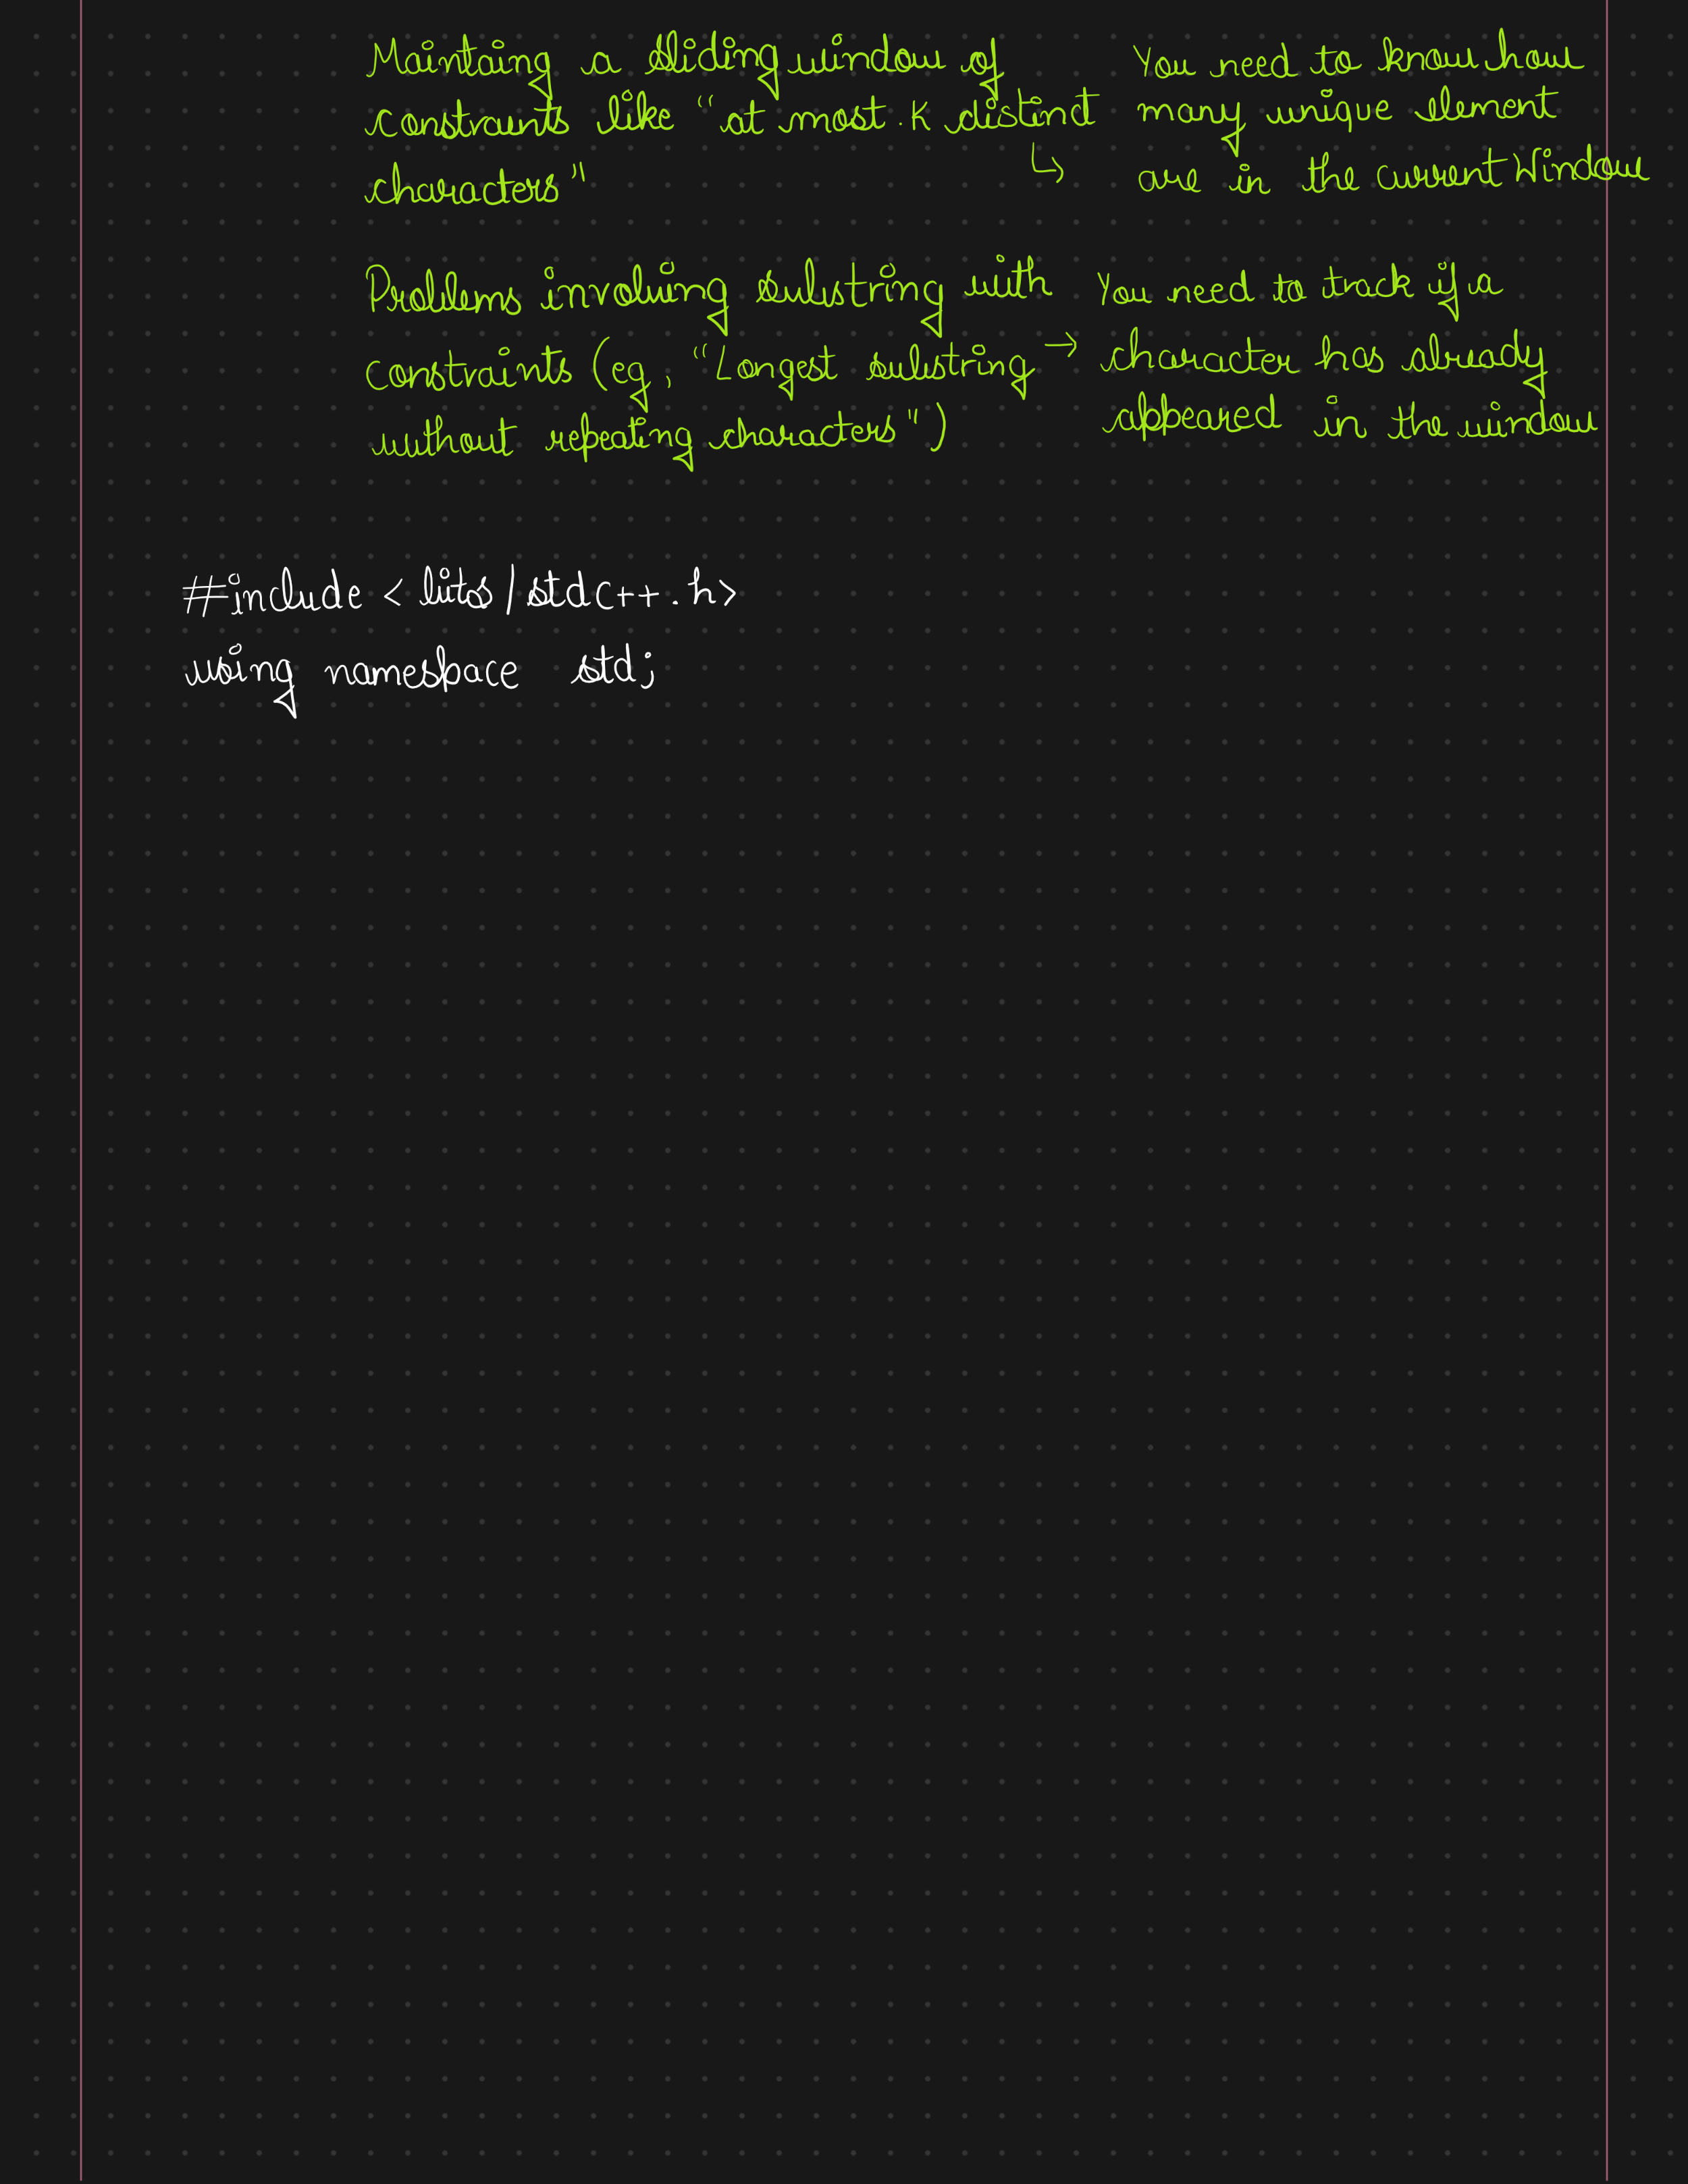 Maintaing a sliding window of
constraints like "at most.K distinct
characters"
↳ You need to know how
many unique element
are in the current Window
Problems involving substring with
constraints (eg, "Longest substring
without repeating characters")
→ You need to track if a
character has already
appeared in the window
#include <bits/stdc++.h>
using namespace std;